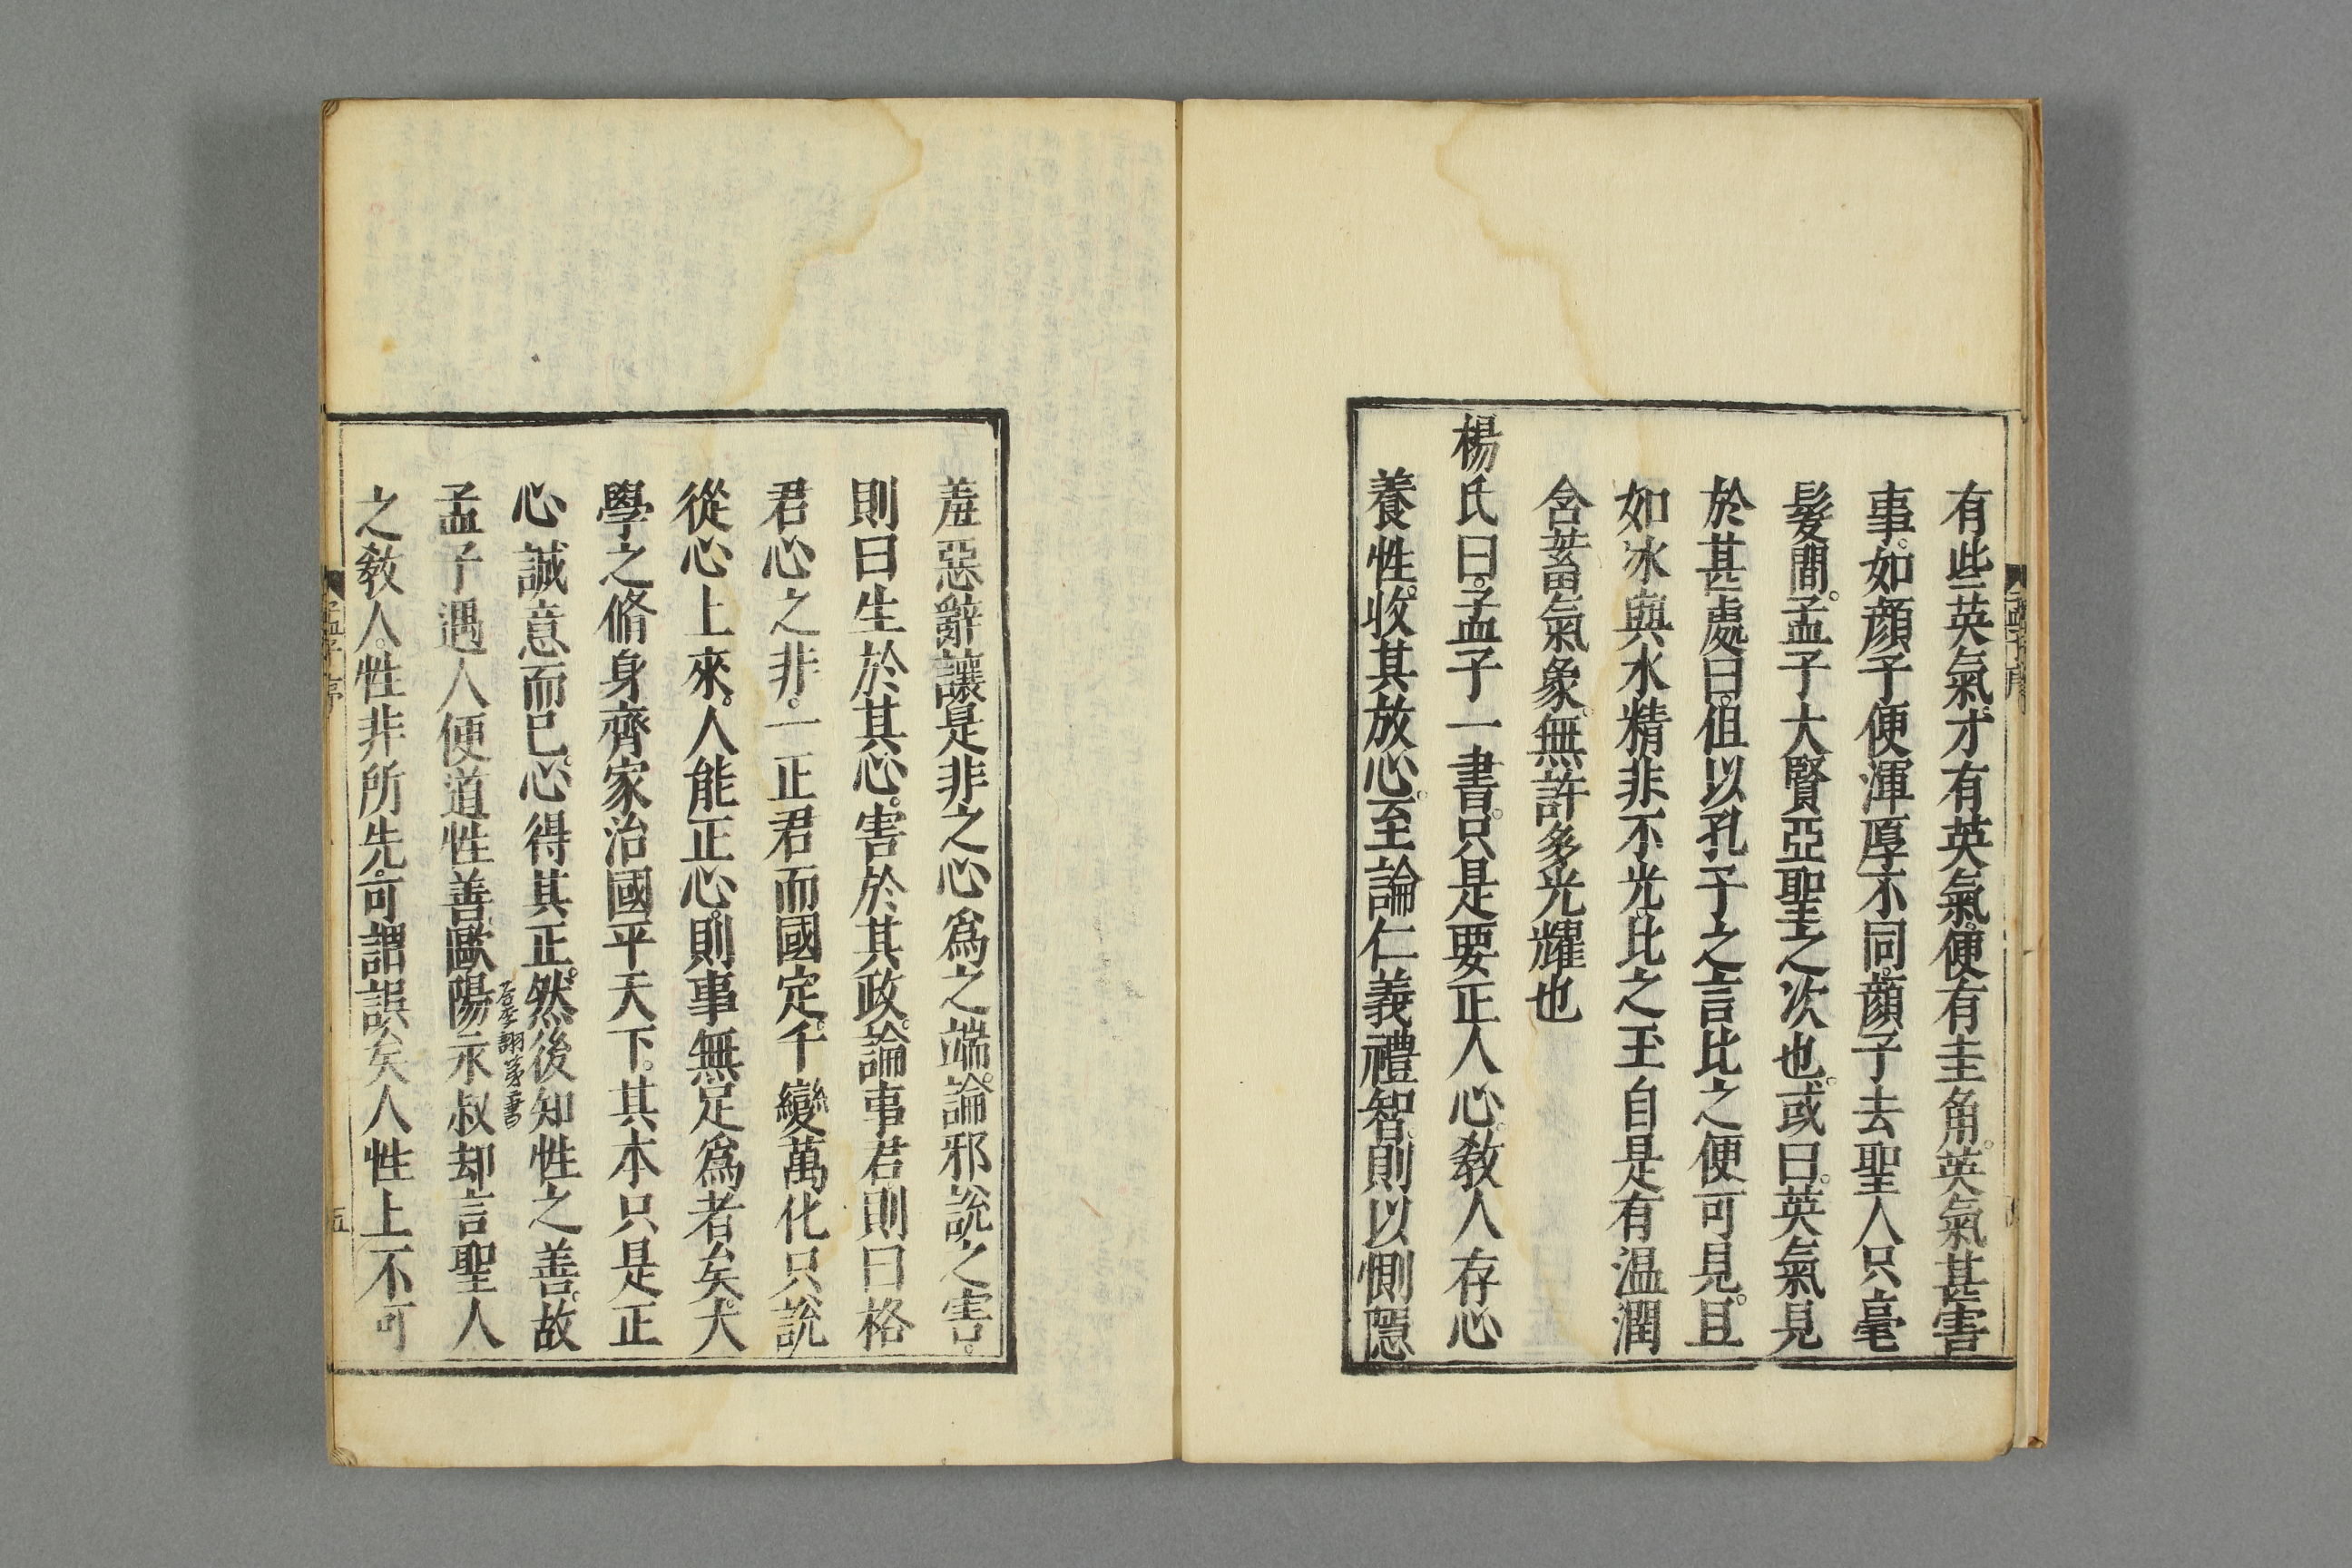 有些英氣。才有英氣。便有圭角。英氣甚害
事。如顔子便渾厚不同。顔子去聖人只毫
髮間。孟子大賢亞聖之次也。或曰。英氣見
於甚處。曰。但以孔子之言比之便可見。且
如冰與水精非不光。比之玉自是有温潤
含蓄氣象。無許多光耀也
楊氏曰。孟子一書。只是要正人心。教人存心
養性。收其放心。至論仁義禮智。則以惻隱
羞惡辭讓是非之心爲之端。論邪説之害。
則曰生於其心。害於其政。論事君則曰格
君心之非。一正君而國定。千變萬化只説
從心上來。人能正心。則事無足爲者矣。大
學之脩身齊家治國平天下。其本只是正
心誠意而已。心得其正。然後知性之善。故
孟子遇人便道性善歐陽永叔却言聖人
之教人。性非所先。可謂誤矣人性上不可
孟子序
五